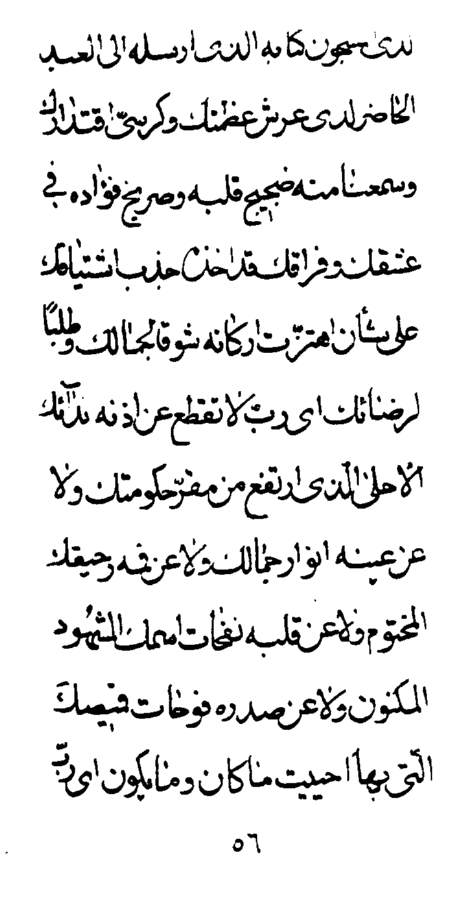 لدی سجون کتابه الذی ارسله الی العبد
الحاضر لدی عرش عظمتك و کرسیّ اقتدارك
و سمعنا منه ضجیج قلبه و صریخ فؤاده فی
عشقك و فراقك قد اخذت جذب اشتیاقك
علی شأن اهتزّت ارکانه شوقا لجمالك و طلبًا
لرضائك ای ربّ لا تقطع عن اذنه ندآئك
الاحلی الّذی ارتفع من مقرّ حکومتك و لا
عن عینه انوار جمالك و لا عن فمه رحیقك
المختوم و لا عن قلبه نفحات اسمك المشهود
المکنون و لا عن صدره فوحات قمیصك
الّتی بها احییت ما کان و ما یکون ای ربّ
٥٦